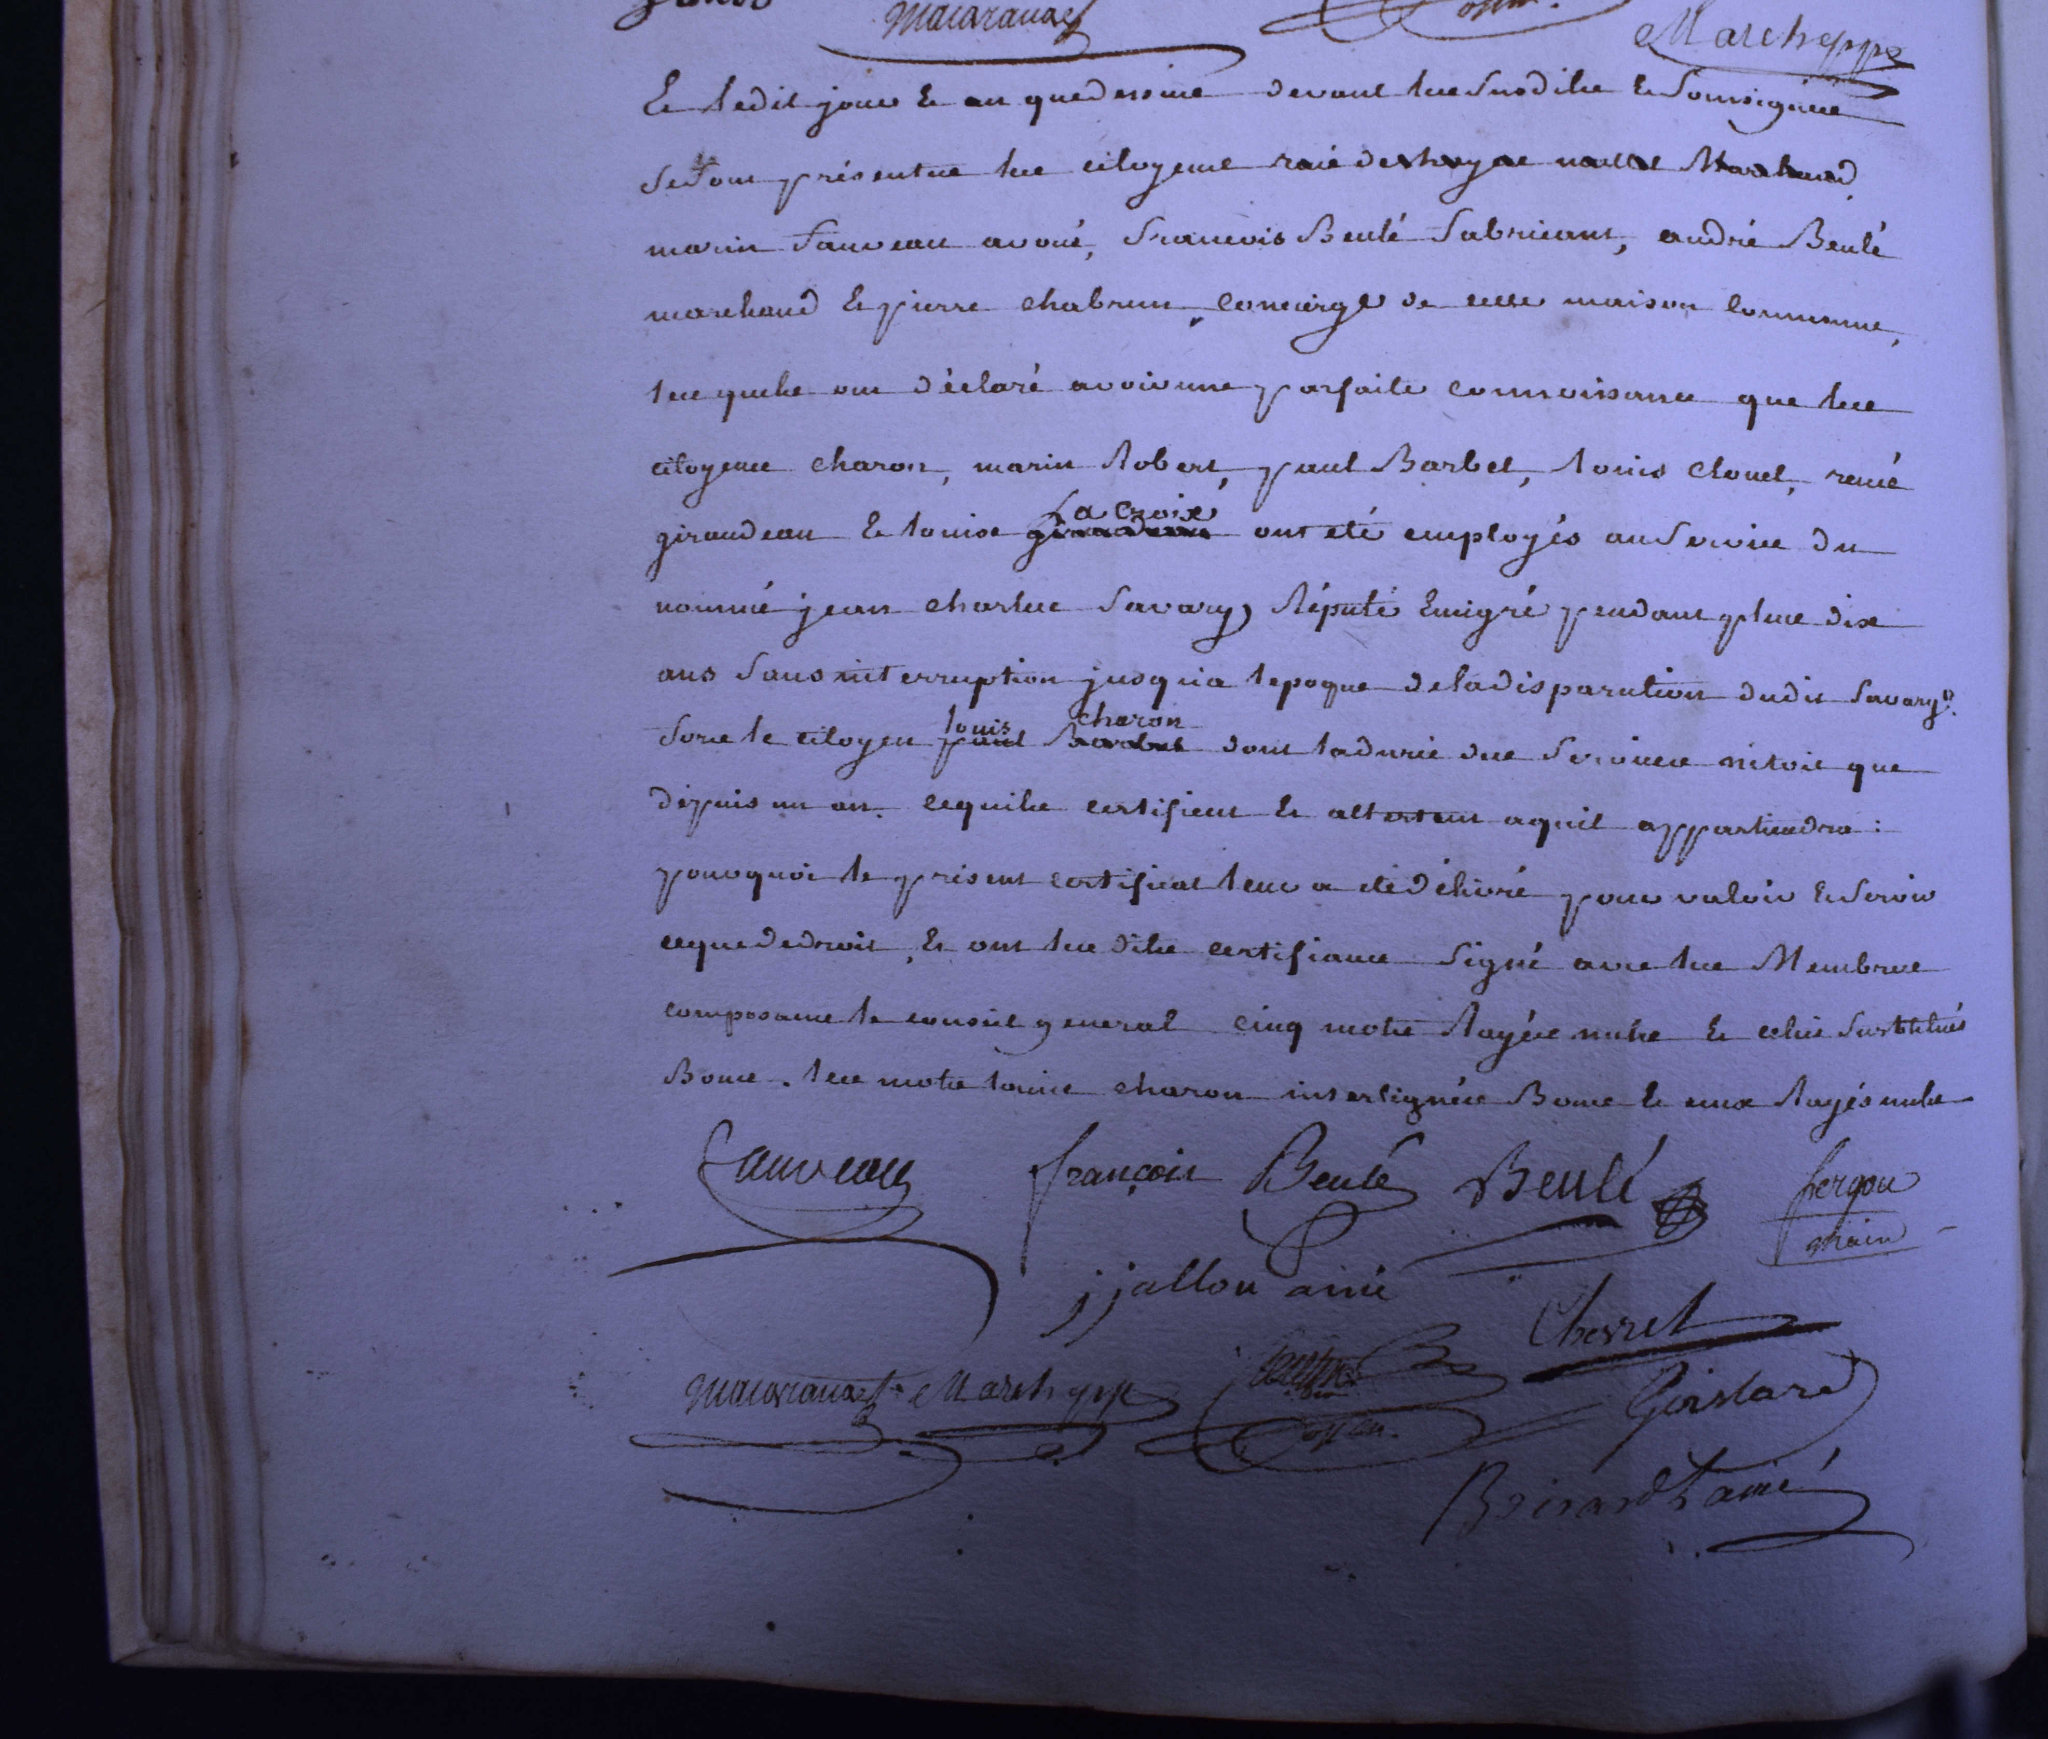 Macarauax Marchyppe
Et ledit jour et an que dessus devant les susdits et soussignés
Se sont présentés les citoyens marchand
marin Sauveau avoué, francois Beulé fabricant, andré Beulé
marchand et pierre chabrun concierge de cette maison commune,
les quels ont déclaré avoir une parfaite connoissance que les
citoyens charon, marin Robert, paul Barbet, louis Clouet, rené
giraudeau et louise La Croix ont été employés au Service du
nommé jean charles Savary Réputé Emigré pendant plus dix
ans sans interruption jusqu'a lepoque de la disparution dudit Savary
Sore le citoyen louis charon paul Barbet dont la durée des Services nétoit que
dépuis un an. ce quils certifient et attestent a quil appartiendra :
pourquoi le présent certificat leur a été délivré pour valoir et servir
ce que de droit, et ont les dits certifians Signé avec les Membres
composans le conseil general cinq mots Rayés nuls et celui Substitués
Bons. les mots louis charon interlignés Bons et ceux Rayés nuls
Sauveau françois Beulé Beulé fergon
main
jjallou ainé
Chesret
Macarauax Marchypp
Girslard
ainé